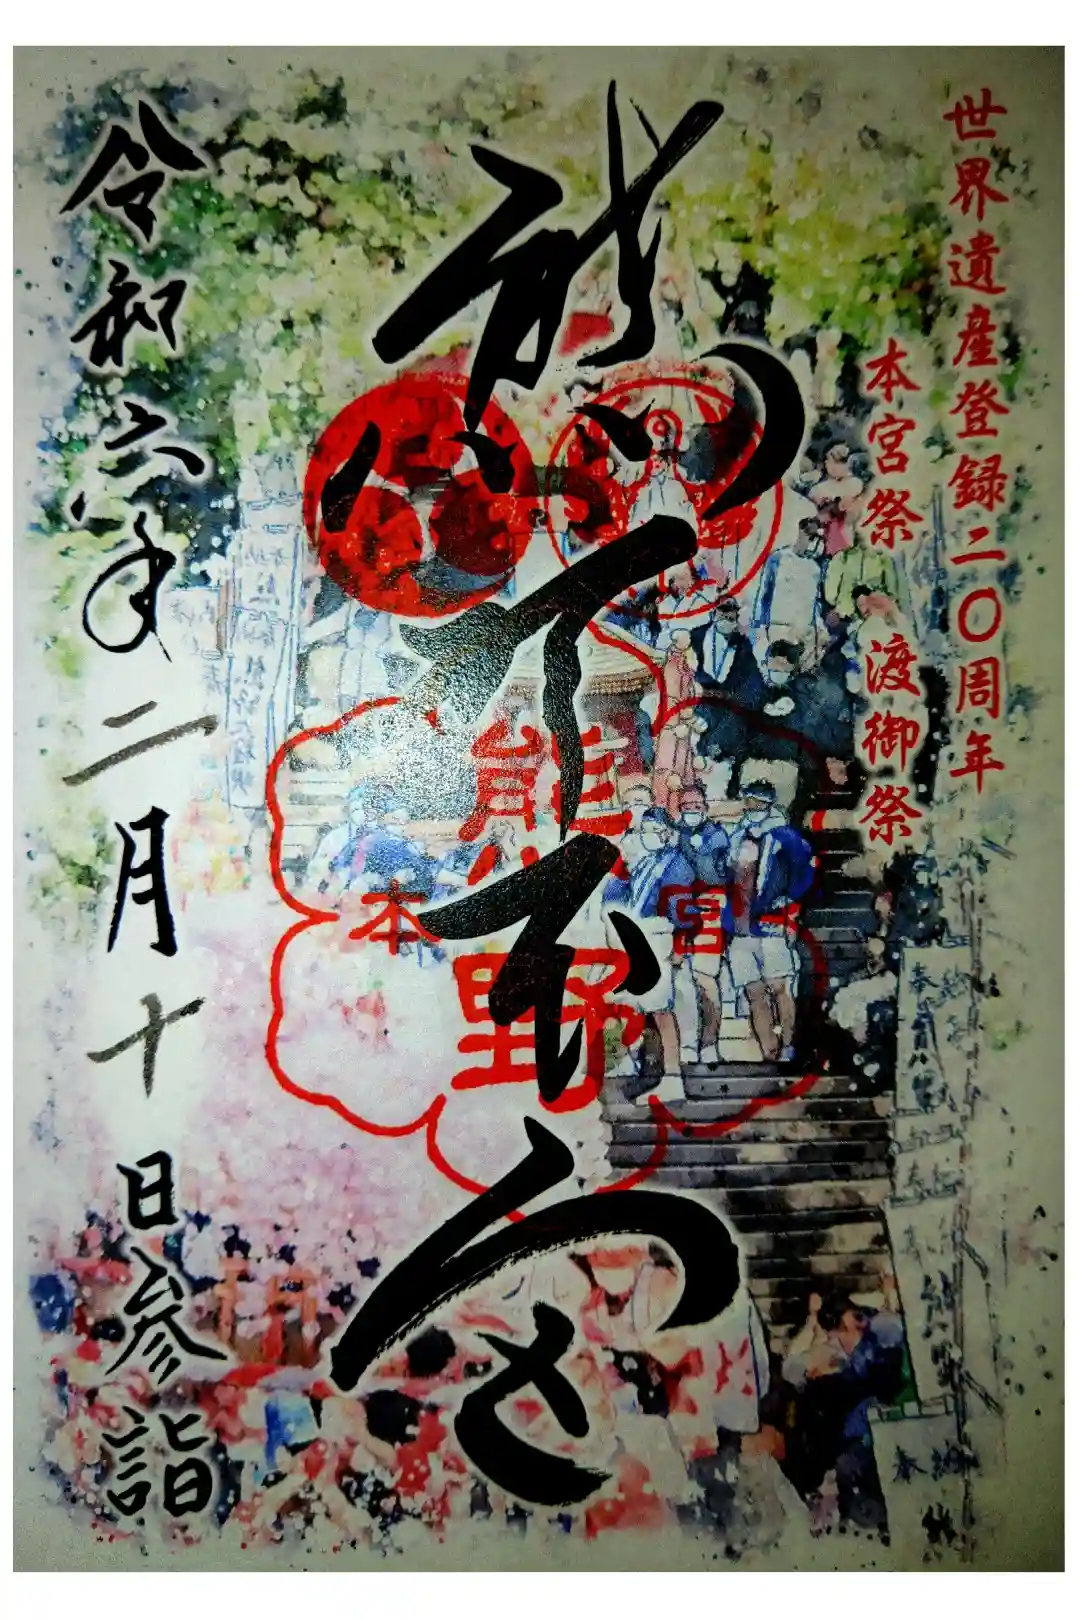 世界遺産登録二〇周年
本宮祭 渡御祭
熊野本宮
熊野
本宮
令和六年二月十日参詣